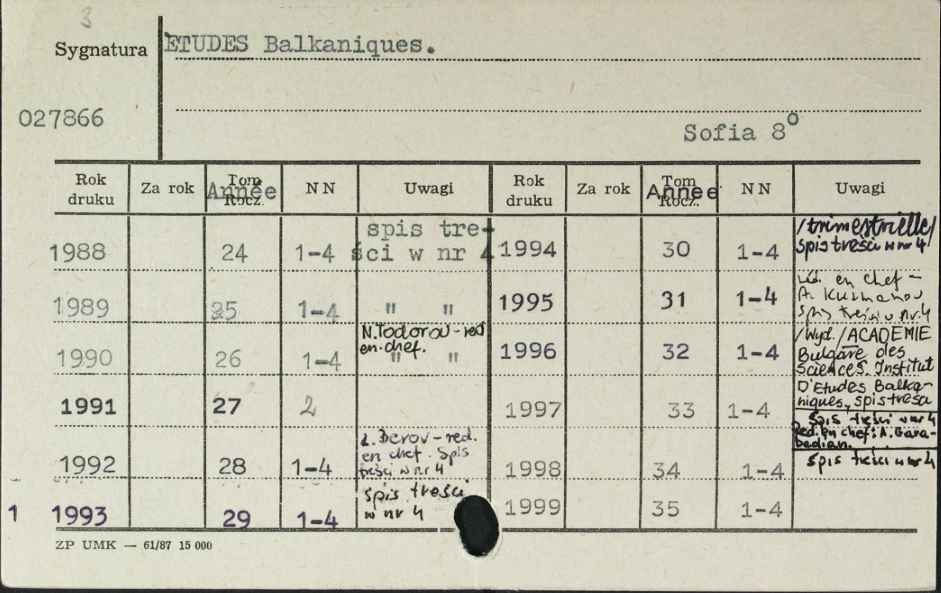 3
Sygnatura ETUDES Balkaniques.
027866
Sofia 8o
Rok druku Za rok Tom Année Rocz. NN Uwagi Rok druku Za rok Tom Année Rocz. NN Uwagi
1988 24 1-4 spis treści w nr 4 1994 30 1-4 /trimestrielle/ spis treści w nr 4
1989 25 1-4 " " 1995 31 1-4 en chef - A. spis treści w nr 4
1990 26 1-4 N. Todorov - red en-chef. " " 1996 32 1-4 /Wyd./ACADEMIE Bulgare des Sciences. Institut
1991 27 2 1997 33 1-4 D'Etudes Balkaniques, spis treści w nr 4
Red. en chef: A. Garabedian.
1992 28 1-4 Z. Berov - red. en chef. Spis treści w nr 4 1998 34 1-4 spis treści w nr 4
1 1993 29 1-4 spis treści w nr 4 1999 35 1-4
ZP UMK — 61/87 15 000